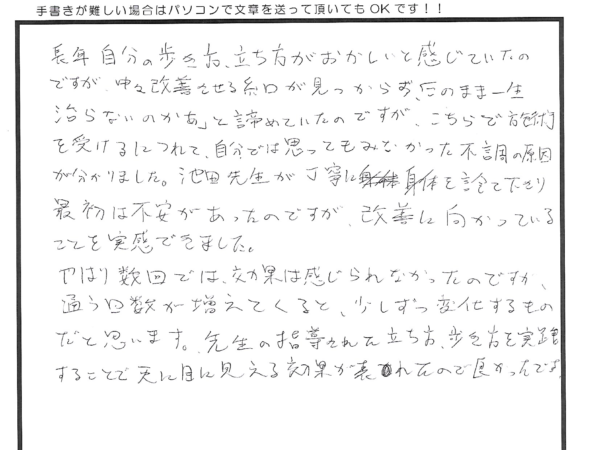 手書きが難しい場合はパソコンで文章を送って頂いてもOKです！！
長年 自分の歩き方、立ち方がおかしいと感じていたの
ですが、中々改善させる糸口が見つからず、「このまま一生
治らないのかあ」と諦めていたのですが、こちらで施術
を受けるにつれて、自分では思ってもみなかった不調の原因
が分かりました。池田先生が丁寧に身体を診て下さり
最初は不安があったのですが、改善に向かっている
ことを実感できました。
やはり数回では、効果は感じられなかったのですが、
通う回数が増えてくると、少しずつ変化するもの
だと思います。先生の指導された立ち方、歩き方を実践
することで更に目に見える効果が表れたので良かったです